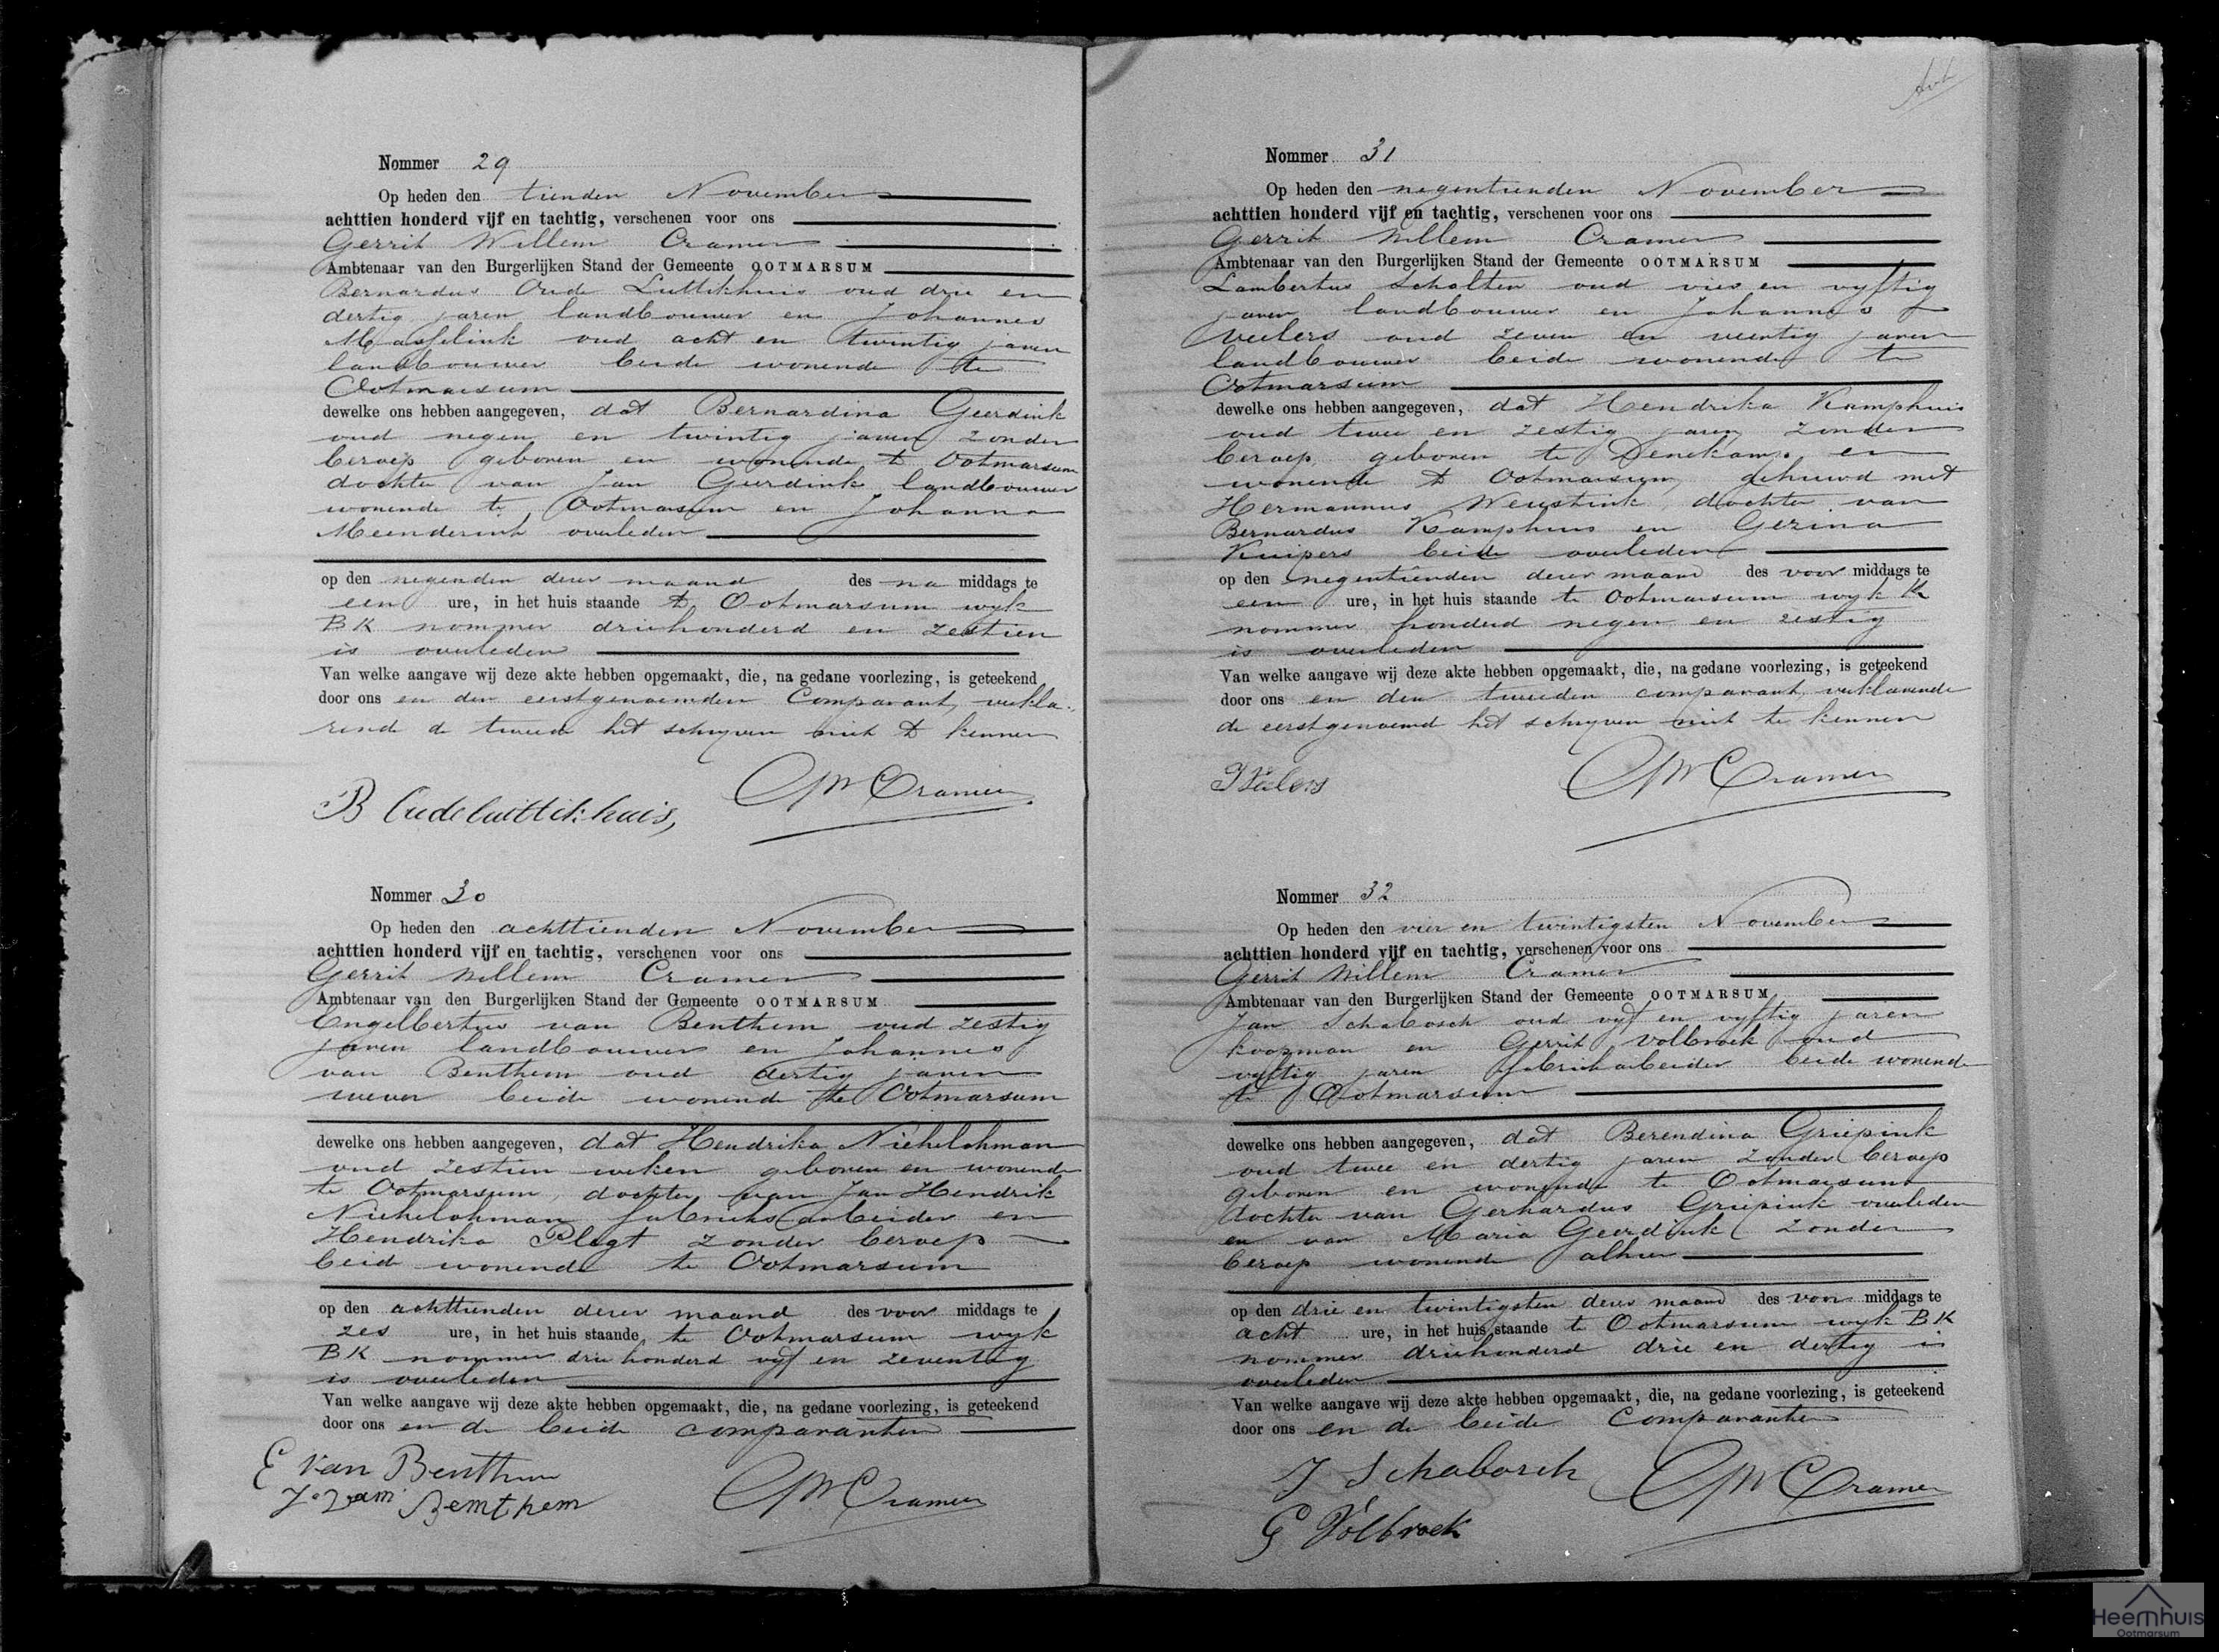 Nommer 29
Op heden den tienden November
achttien honderd vijf en tachtig, verschenen voor ons
Gerrit Willem Cramer
Ambtenaar van den Burgerlijken Stand der Gemeente OOTMARSUM
Bernardus Oude Luttikhuis oud drie en
dertig jaren landbouwer en Johannes
Masselink oud acht en twintig jaren
landbouwer beide wonende te
Ootmarsum
dewelke ons hebben aangegeven, dat Bernardina Geerdink
oud negen en twintig jaren zonder
beroep geboren en wonende te Ootmarsum
dochter van Jan Geerdink landbouwer
wonende te Ootmarsum en Johanna
Meenderink overleden
op den negenden dezer maand des na middags te
een ure, in het huis staande te Ootmarsum wyk
BK nommer driehonderd en zestien
is overleden
Van welke aangave wij deze akte hebben opgemaakt, die, na gedane voorlezing, is geteekend
door ons en den eerstgenoemden Comparant, verkla-
rend de tweede het schryven niet te kennen
B Oudeluttikhuis, GW Cramer
Nommer 30
Op heden den achttienden November
achttien honderd vijf en tachtig, verschenen voor ons
Gerrit Willem Cramer
Ambtenaar van den Burgerlijken Stand der Gemeente OOTMARSUM
Engelbertus van Benthem oud zestig
jaren landbouwer en Johannes
van Benthem oud dertig jaren
wever beide wonende te Ootmarsum
dewelke ons hebben aangegeven, dat Hendrika Niehelohman
oud zestien weken geboren en wonende
te Ootmarsum, dochter van Jan Hendrik
Niehelohman fabrieksarbeider en
Hendrika Plegt zonder beroep
beide wonende te Ootmarsum
op den achttienden dezer maand des voor middags te
zes ure, in het huis staande te Ootmarsum wyk
BK nommer driehonderd vyf en zeventig
is overleden
Van welke aangave wij deze akte hebben opgemaakt, die, na gedane voorlezing, is geteekend
door ons en de beide comparanten
E van Benthem
J. van Bemthem GW Cramer
Nommer 31
Op heden den negentienden November
achttien honderd vijf en tachtig, verschenen voor ons
Gerrit Willem Cramer
Ambtenaar van den Burgerlijken Stand der Gemeente OOTMARSUM
Lambertus Scholten oud vier en vyftig
jaren landbouwer en Johannes
Veelers oud zeven en veertig jaren
landbouwer beide wonende te
Ootmarsum
dewelke ons hebben aangegeven, dat Hendrika Kamphuis
oud twee en zestig jaren zonder
beroep, geboren te Denekamp en
wonende te Ootmarsum, gehuwd met
Hermannus Weustink, dochter van
Bernardus Kamphuis en Gezina
Kuipers beide overleden
op den negentienden dezer maand des voor middags te
een ure, in het huis staande te Ootmarsum wyk K
nommer honderd negen en zestig
is overleden
Van welke aangave wij deze akte hebben opgemaakt, die, na gedane voorlezing, is geteekend
door ons en den tweeden comparant, verklarende
de eerstgenoemd het schryven niet te kennen
GW Cramer
Nommer 32
Op heden den vier en twintigsten November
achttien honderd vijf en tachtig, verschenen voor ons
Gerrit Willem Cramer
Ambtenaar van den Burgerlijken Stand der Gemeente OOTMARSUM
Jan Schabosch oud vyf en vyftig jaren
koopman en Gerrit Volbroek oud
vyftig jaren fabriekarbeider beide wonende
te Ootmarsum
dewelke ons hebben aangegeven, dat Berendina Griepink
oud twee en dertig jaren zonder beroep
geboren en wonende te Ootmarsum
dochter van Gerhardus Griepink overleden
en van Maria Geerdink zonder
beroep wonende alhier
op den drie en twintigsten dezer maand des voor middags te
acht ure, in het huis staande te Ootmarsum wyk BK
nommer driehonderd drie en dertig is
overleden
Van welke aangave wij deze akte hebben opgemaakt, die, na gedane voorlezing, is geteekend
door ons en de beide Comparanten
J Schabosch GW Cramer
G Volbroek
Heemhuis
Ootmarsum